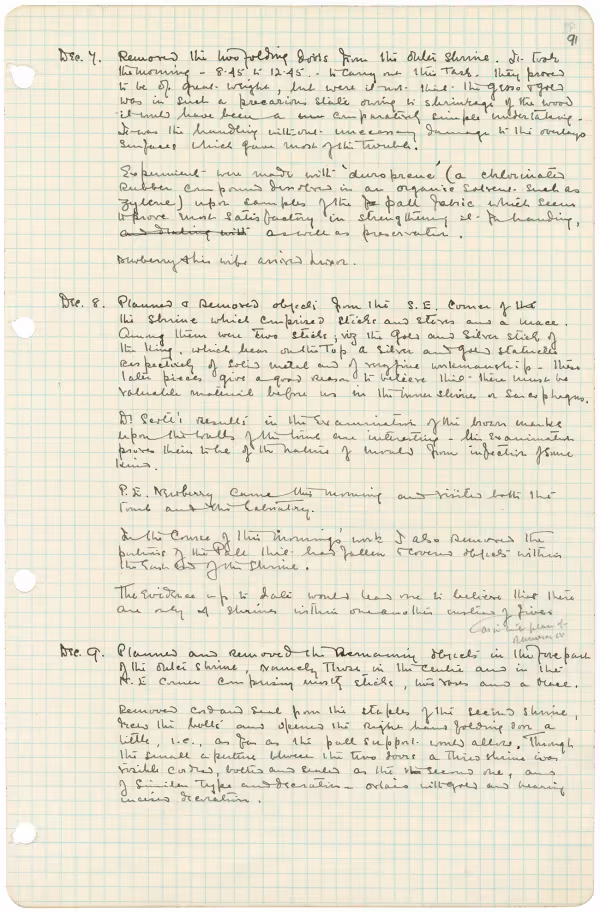 91
Dec. 7. Removed the two folding doors from the outer shrine. It took
the morning - 8.45 to 12.45 - to carry out this task. They proved
to be of great weight, but were it not that the gesso & gold
was in such a precarious state owing to shrinkage of the wood
it would have been a comparatively simple undertaking.
It was the handling without unnecessary damage to the overlay
surfaces which gave most of the trouble.
Experiments were made with 'duroprene' (a chlorinated
rubber compound dissolved in an organic solvent such as
zylene) upon samples of the pall fabric which seems
to prove most satisfactory in strengthening it for handling,
as well as preservation.
Newberry & his wife arrived Luxor.
Dec. 8. Planned & removed objects from the S.E. corner of the
the shrine which comprised sticks and staves and a mace.
Among them were two sticks; viz the Gold and Silver stick of
the King, which bears on the top a silver and gold statuette
respectively of solid metal and of very fine workmanship - these
later pieces give a good reason to believe that there must be
valuable material before us in the inner shrines or sarcophagus.
Dr Scott's results in the examination of the brown marks
upon the walls of the tomb are interesting - his examination
proves them to be of the nature of mould from infection of some
kind.
P.E. Newberry came this morning and visited both the
tomb and the laboratory.
In the course of this morning's work I also removed the
portions of the Pall that had fallen & covered objects within
the East end of the Shrine.
The evidence up to date would lead one to believe that there
are only 4 shrines within one another instead of five
Dec. 9. Planned and removed the remaining objects in the fore part
of the outer shrine, namely those in the centre and in the
N.E corner comprising mostly sticks, two and a mace.
Removed cord and seal from the staples of the second shrine,
drew the bolts and opened the right hand folding door a
little, i.e., as far as the pall support would allow. Through
the small aperture between the two doors a third shrine was
visible corded, bolted and sealed as the second one, and
of similar type and decoration - overlaid with gold and bearing
incised decoration.